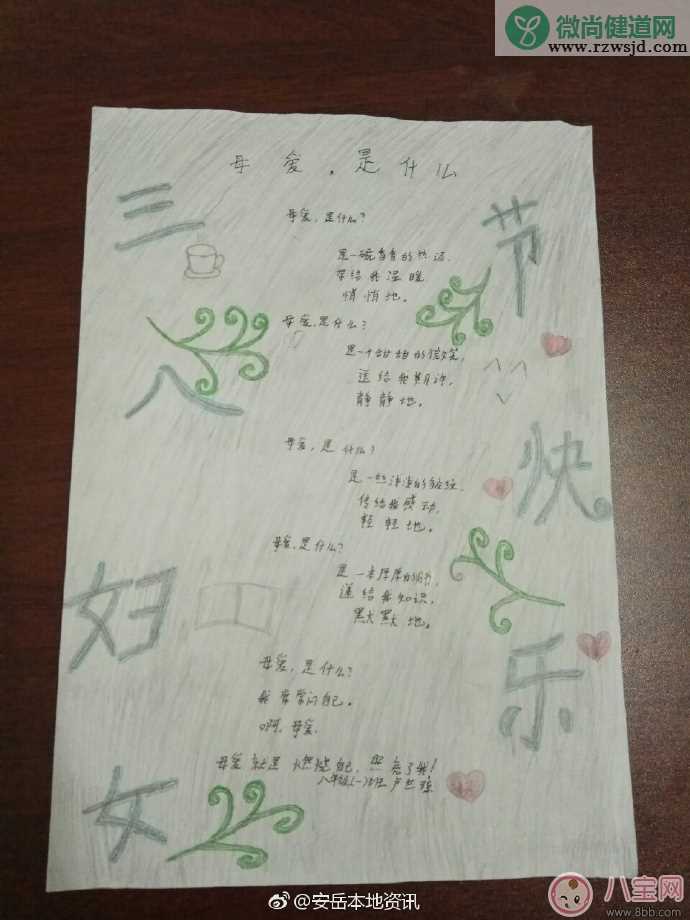 微尚健道网
www.rzwsjd.com
母爱,是什么
三八妇女
节快乐
母爱,是什么?
是一碗香香的热汤,
带给我温暖,
悄悄地。
母爱,是什么?
是一个甜甜的微笑,
送给我期许,
静静地。
母爱,是什么?
是一丝淡淡的
传给我感动,
轻轻地。
母爱,是什么?
是一本厚厚的
递给我知识,
默默地。
母爱,是什么?
我常常问自己。
啊,母爱,
母爱就是燃烧自己,照亮了我!
八年级(一)班
@安岳本地资讯
八宝网
www.8bb.com